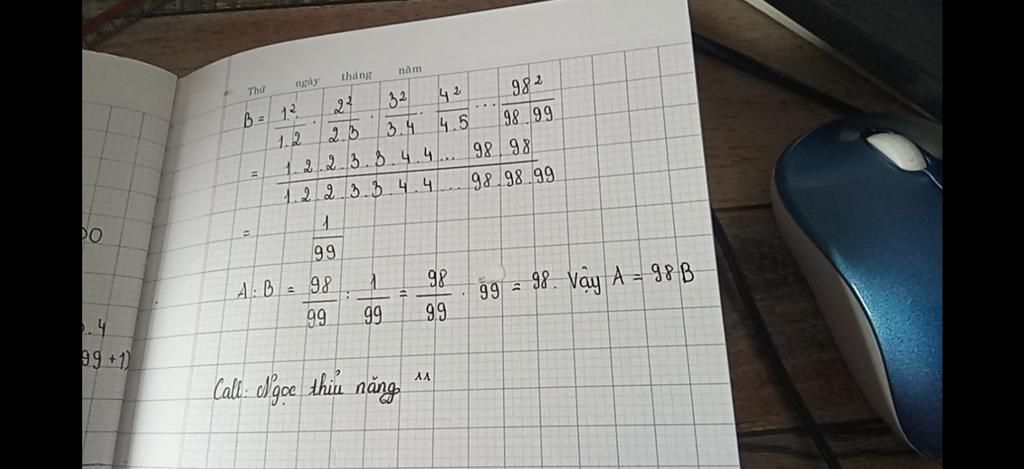 Thứ ngày tháng năm
B = 1²/1.2 . 2²/2.3 . 3²/3.4 . 4²/4.5 ... 98²/98.99
= 1.2.2.3.3.4.4... 98.98/1.2.2.3.3 4.4... 98.98.99
= 1/99
A:B = 98/99 : 1/99 = 98/99 . 99 = 98. Vậy A = 98B
Call: Ngọc thiủ năng ^^
00
.4
99+1)